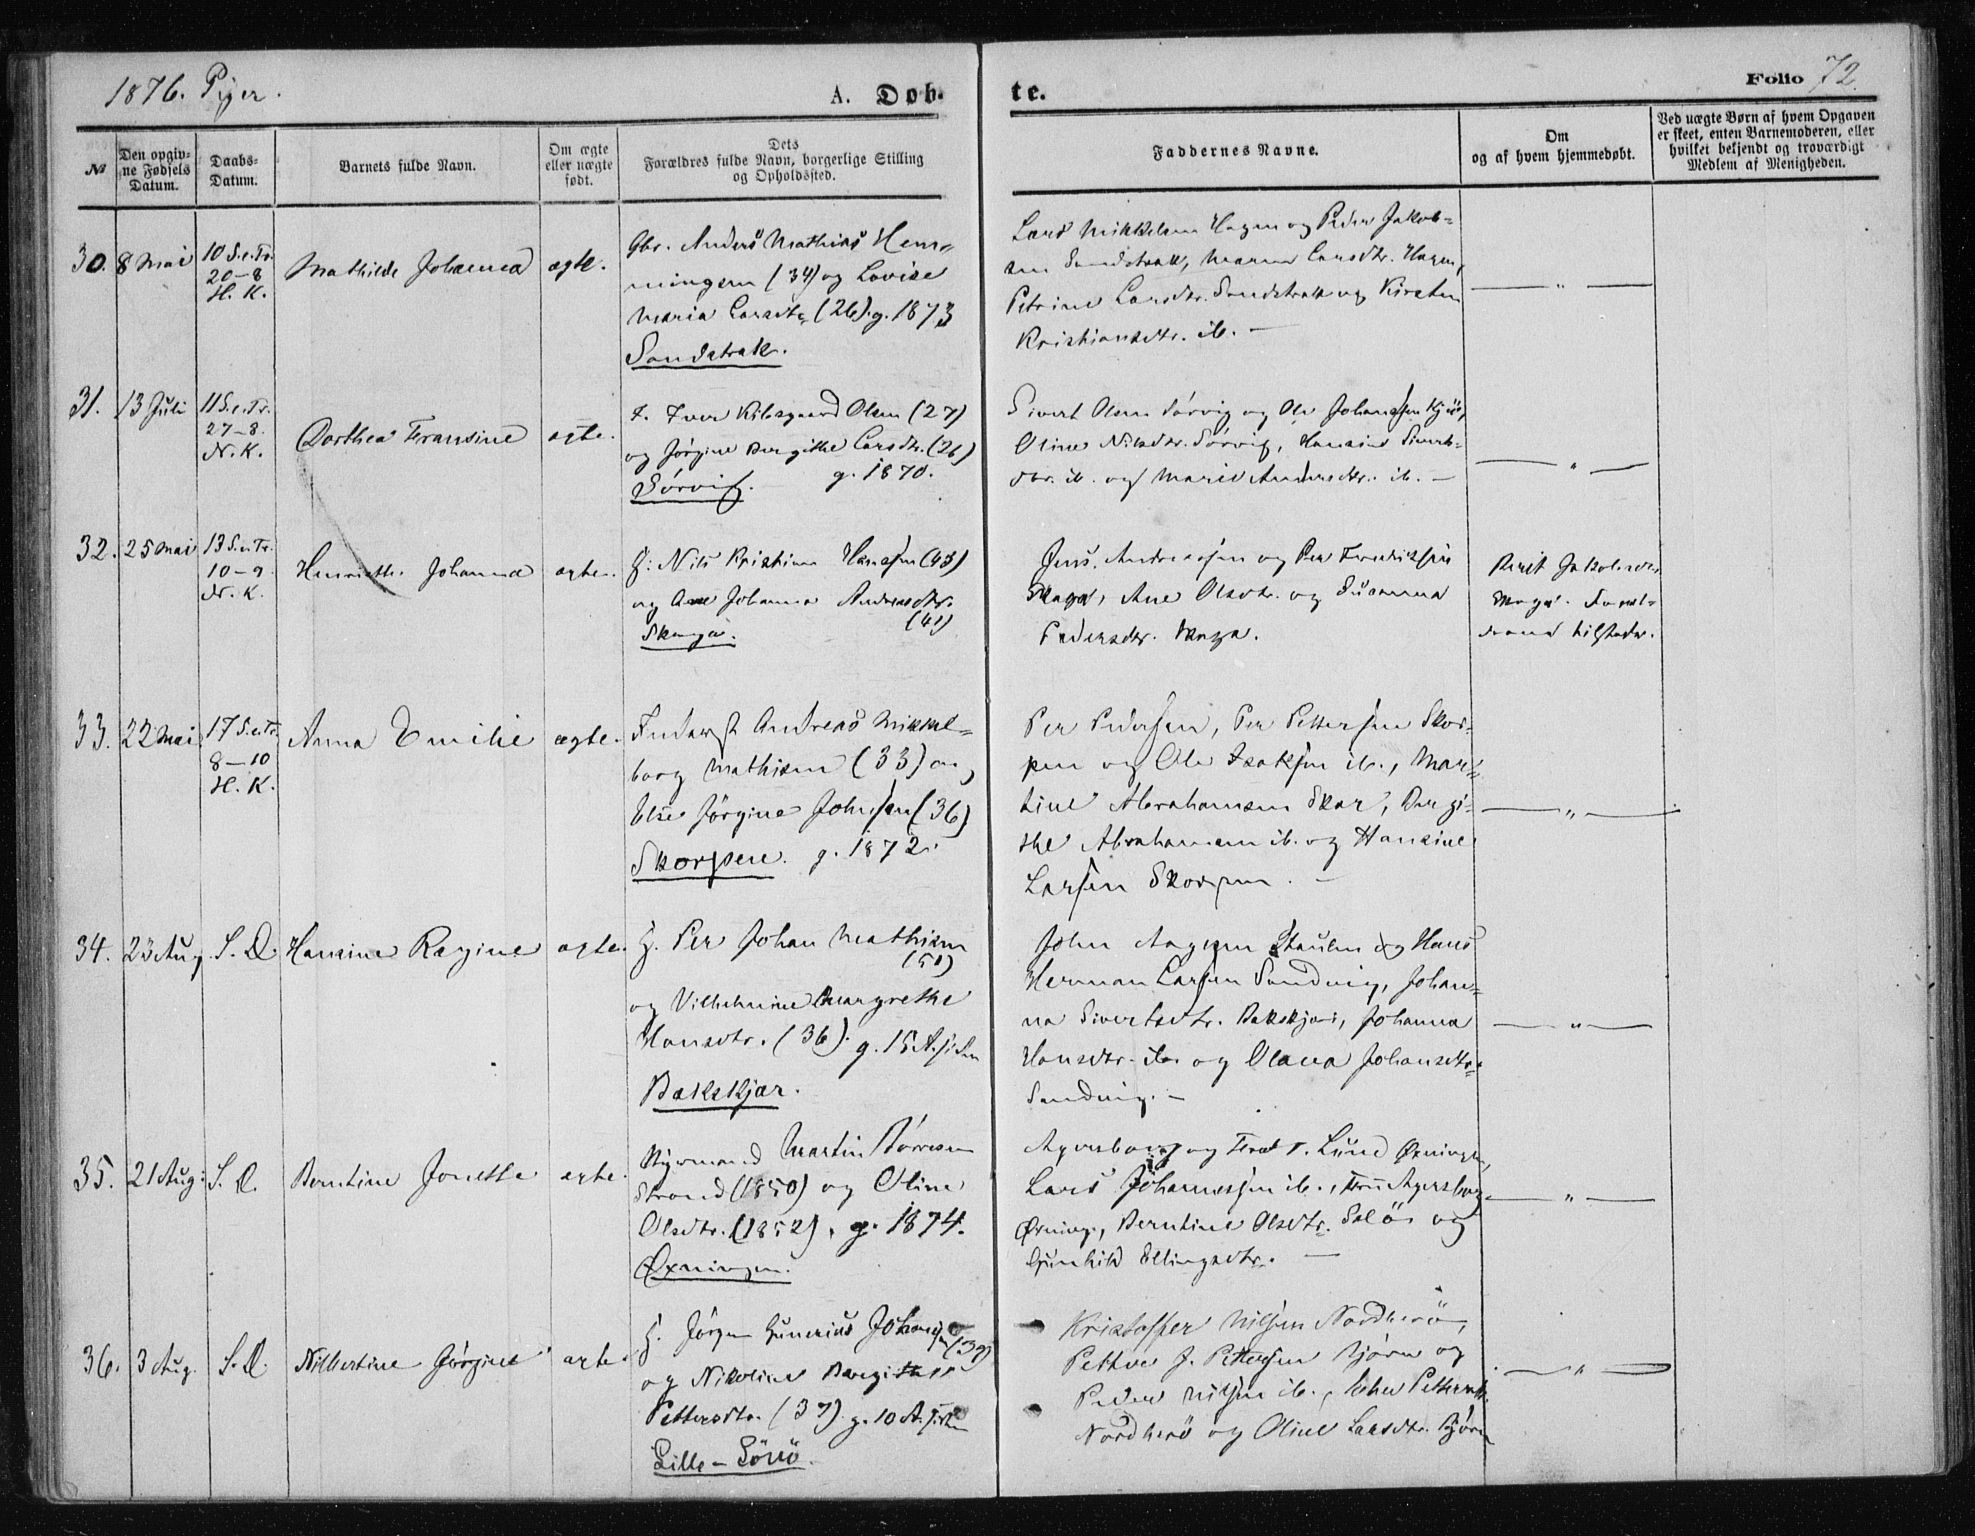 1876. Piger.
A. Døb-
te.
Folio 72.
№
Den opgiv-
ne Fødsels
Datum.
Daabs-
Datum.
Barnets fulde Navn.
Om ægte
eller uægte
født.
Dets
Forældres fulde Navn, borgerlige Stilling
og Opholdssted.
Faddernes Navne.
Om
og af hvem hjemmedøbt.
Ved uægte Børn af hvem Opgaven
er skeet, enten Barnemoderen, eller
hvilket bekjendt og troværdigt
Medlem af Menigheden.
30. 8 Mai
10 S. e. Tr.
20-8
H. K.
Mathilde Johanna
ægte.
Gbr. Anders Mathias Hem-
mingsen (34) og Lovise
Maria Larsdtr. (26). g. 1873
Sandstrak.
Lars Mikkelsen Hagen og Peder Jakob-
sen Sandstrak, Maren Larsdtr. Hagen,
Petrine Larsdtr. Sandstrak og Kirsten
Kristiansdtr. ib. —
— " —
31. 13 Juli
11 S. e. Tr.
27-8.
N. K.
Dorthea Fransine
ægte.
F. Iver Kilsgaard Olsen (27)
og Jørgine Bergithe Larsdtr. (26)
Sörvig. g. 1870.
Sivert Olsen Sörvig og Ole Johanssen
Oline Nilsdtr. Sörvig, Hansine Siverts-
dtr. ib. og Marie Andersdtr. ib. —
— " —
32. 25 Mai
13 S. e. Tr.
10-9
N. K.
Henriette Johanna
ægte.
G. Nils Kristian Hanssen (43)
og Ane Johanna Andreasdtr.
(41)
Skaga.
Jens Andreassen og Per Fredriksen
Skaga, Ane Olsdtr. og Susanna
Pedersdtr. Skaga.
Berit Jakobsdtr.
Skaga. Foræl-
drene tilstede.
33. 22 Mai
17 S. e. Tr.
8-10
H. K.
Anna Emilie
ægte.
Andreas Mikkel-
borg Mathisen (33) og
Else Jørgine Johnsen (36)
Skorpen. g. 1872.
Per Pedersen, Per Pettersen Skor-
pen og Ole Isaksen ib., Mar-
tine Abrahamsen Skar, Bergi-
the Abrahamsen ib. og Hansine
Larsen Skorpen. —
— " —
34. 23 Aug
S. D.
Hansine Regine
ægte.
G. Per Johan Mathisen
(51)
og Vilhelmine Margrethe
Hansdtr. (36). g. 15 A. siden
Bakskjær.
John Aagesen Staulen og Hans
Herman Larsen Sandvig, Johan-
na Sivertsdtr. Bakskjær, Johanna
Hansdtr. ib. og Olava Johansdtr.
Sandvig. —
— " —
35. 21 Aug:
S. D.
Berntine Jonette
ægte.
Styrmand Martin Tørresen
Strand (1850) og Oline
Olsdtr. (1852). g. 1874.
Øxningen.
Agersborg og Fred. T. Lund Øxningen,
Lars Johannessen ib., Fru Agersborg
Øxning., Berntine Olsdtr. Solö og
Gunhild Ellingsdtr. —
— " —
36. 3 Aug.
S. D.
Nilbertine Jørgine
ægte.
G. Jørgen Gunerius Johansen (39)
og Nikoline Bergithe
Pettersdtr. (37) g. 10 A. siden
Lille-Sörö.
Kristoffer Nilsen Nordherö,
Petter J. Pettersen Bjørn og
Peder Nilsen ib., Pettersdtr.
Nordherö og Oline Larsdtr. Bjørn
— " —